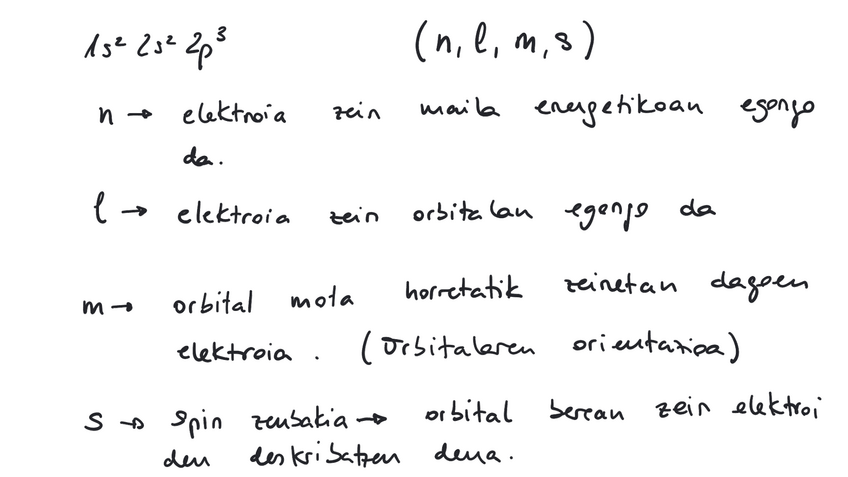 1s² 2s² 2p³ (n, l, m, s)
n → elektroia zein maila energetikoan egongo
da.
l → elektroia zein orbitalan egongo da
m → orbital mota horretatik zeinetan dagoen
elektroia. (Orbitalaren orientazioa)
s → spin zenbakia → orbital berean zein elektroi
den deskribatzen dena.